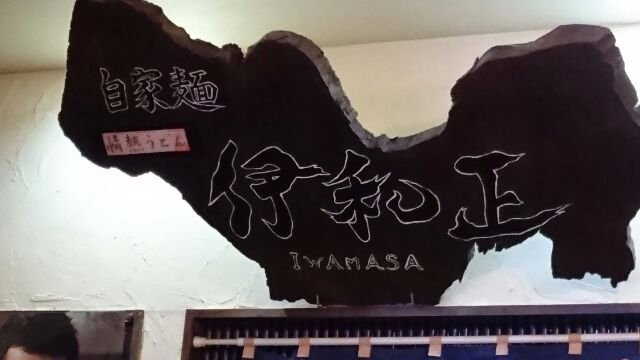 自家麺
情熱うどん
伊和正
IWAMASA